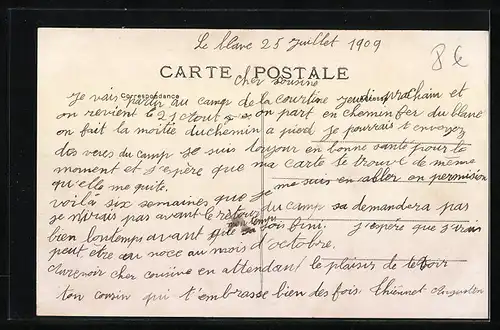 Le blanc 25 juillet 1909
8€
CARTE POSTALE
cher cousine
Correspondance
Je vais partir au camp de la courtine jeudi prochain et
on revient le 21 aout on part en chemin fer du blanc
on fait la moitie duchemin a pied je pourrais t envoyez
des veres du camp je suis toujour en bonne santé pour le
moment et j'espère que ma carte te trouve de même
qu'elle me quite.
voilà six semaines que je me suis en aller en permision
je n'irais pas avant le retour du camp sa demandera pas
bien lontemps avant que sa sois fini. j'espère que j'irais
peut être au noce au mois d'octobre.
Aurevoir cher cousine en attendant le plaisir de te voir
ton cousin qui t'embrasse bien des fois